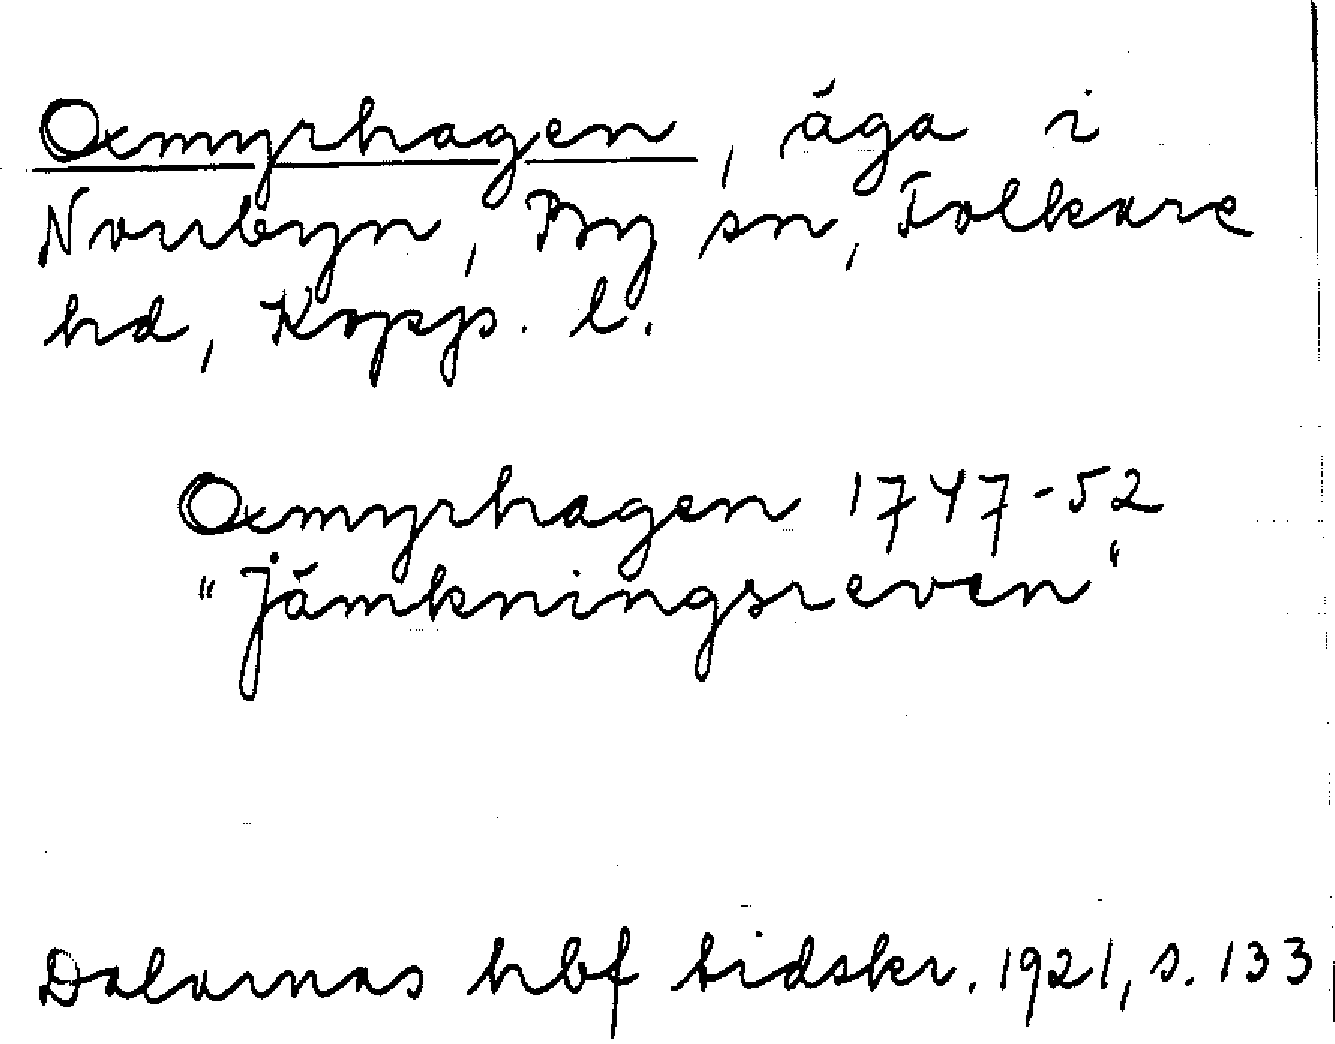 Oxmyrhagen, äga i
Norrbyn, By sn, Folkare
hd, Kopp. l.
Oxmyrhagen 1747-52
"Jämkningsreven"
Dalarnas hbf tidskr. 1921, s. 133